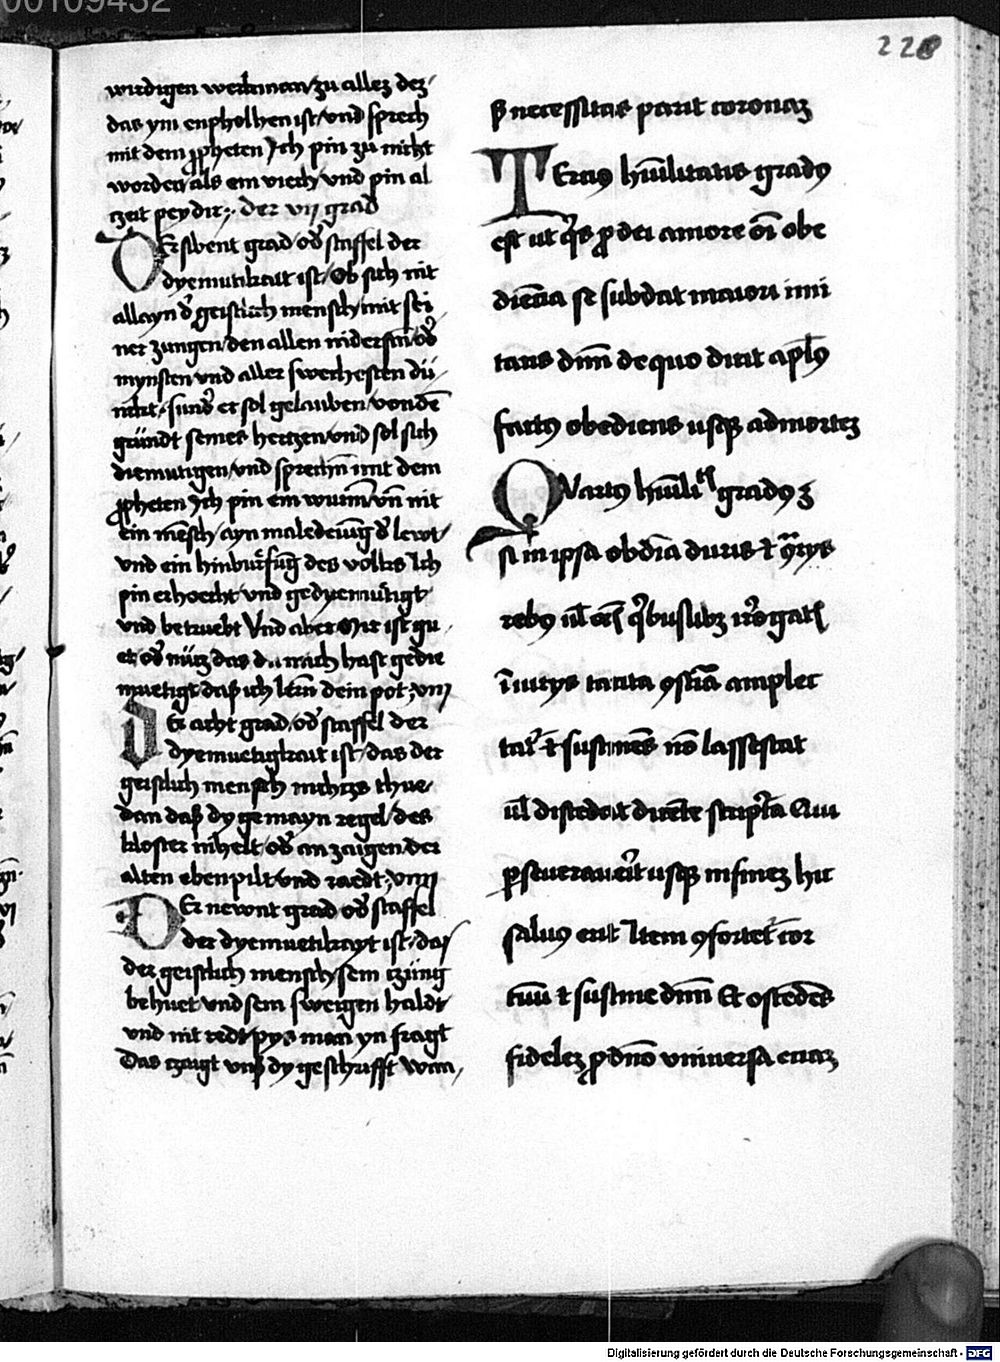 00109432
220
wirdigen werkman zu allez dez
das ym enpholhen ist und sprech
mit dem ꝓpheten Ich pin zu nicht
worden als ein viech und pin al
czeit pey dir Der vij grad
Er sibent grad od̾ staffel der
dyemutikait ist Ob sich nit
allayn d̾ geistlich mensch mit sei
ner zungen den allen nidersten od̾
mynsten und aller swechesten dü
nckt sund̾ er sol gelauben von dē
gründt seines hertzen und sol sich
diemutigen und sprechn̄ mit dem
ꝓpheten Ich pin ein wurm̄ vn̄ nit
ein mēsch ayn maledeiūg d̾ lewt
und ein hinwurfūg des volks Ich
pin erhoecht und gedyemutigt
und betruebt Und aber Mir ist gu
et od̾ nücz das du mich hast gedie
muetigt daß ich lern̄ dein pot viij
Er acht grad od̾ staffel der
dyemuetigkait ist das der
geistlich mensch nichtzs thue
dan daß dy gemayn regel des
kloster inhelt od̾ anzaigen der
alten ebenpilt und raedt viiij
Er newnt grad od̾ staffel
der dyemuetikayt ist das
der geistlich mensch sein czūng
behuet und sein sweigen haldt
und nit redt pys man yn fragt
Das czaigt vnß dy geschrifft wan
necessitas parit coronaꝫ
TErciꝰ hūilitatis gradꝰ
est ut q̾s ꝓ dei amore oī obe
diēcia se subdat maiori imi
tans dnm̄ de quo dicit apl̄ꝰ
factꝰ obediens usqꝫ ad morteꝫ
QVartꝰ hūilitatis gradꝰ ꝫ
si in ipsa obdīa duris & ꝯtrijs
rebꝰ ul̄ eciā q̾buslibꝫ irrogatis
īiurijs tacita ꝯsciā amplec
tat̾ & sustinēs nō lassescat
ul̄ discedat dicēte scriptᵃ Qui
ꝑseveraverit usqꝫ in fineꝫ hic
salvꝰ erit Item ꝯfortet̾ cor
tuū & sustine dnm̄ Et ostēdēs
fideleꝫ ꝓ dn̄o vniversa eciaꝫ
Digitalisierung gefördert durch die Deutsche Forschungsgemeinschaft - DFG